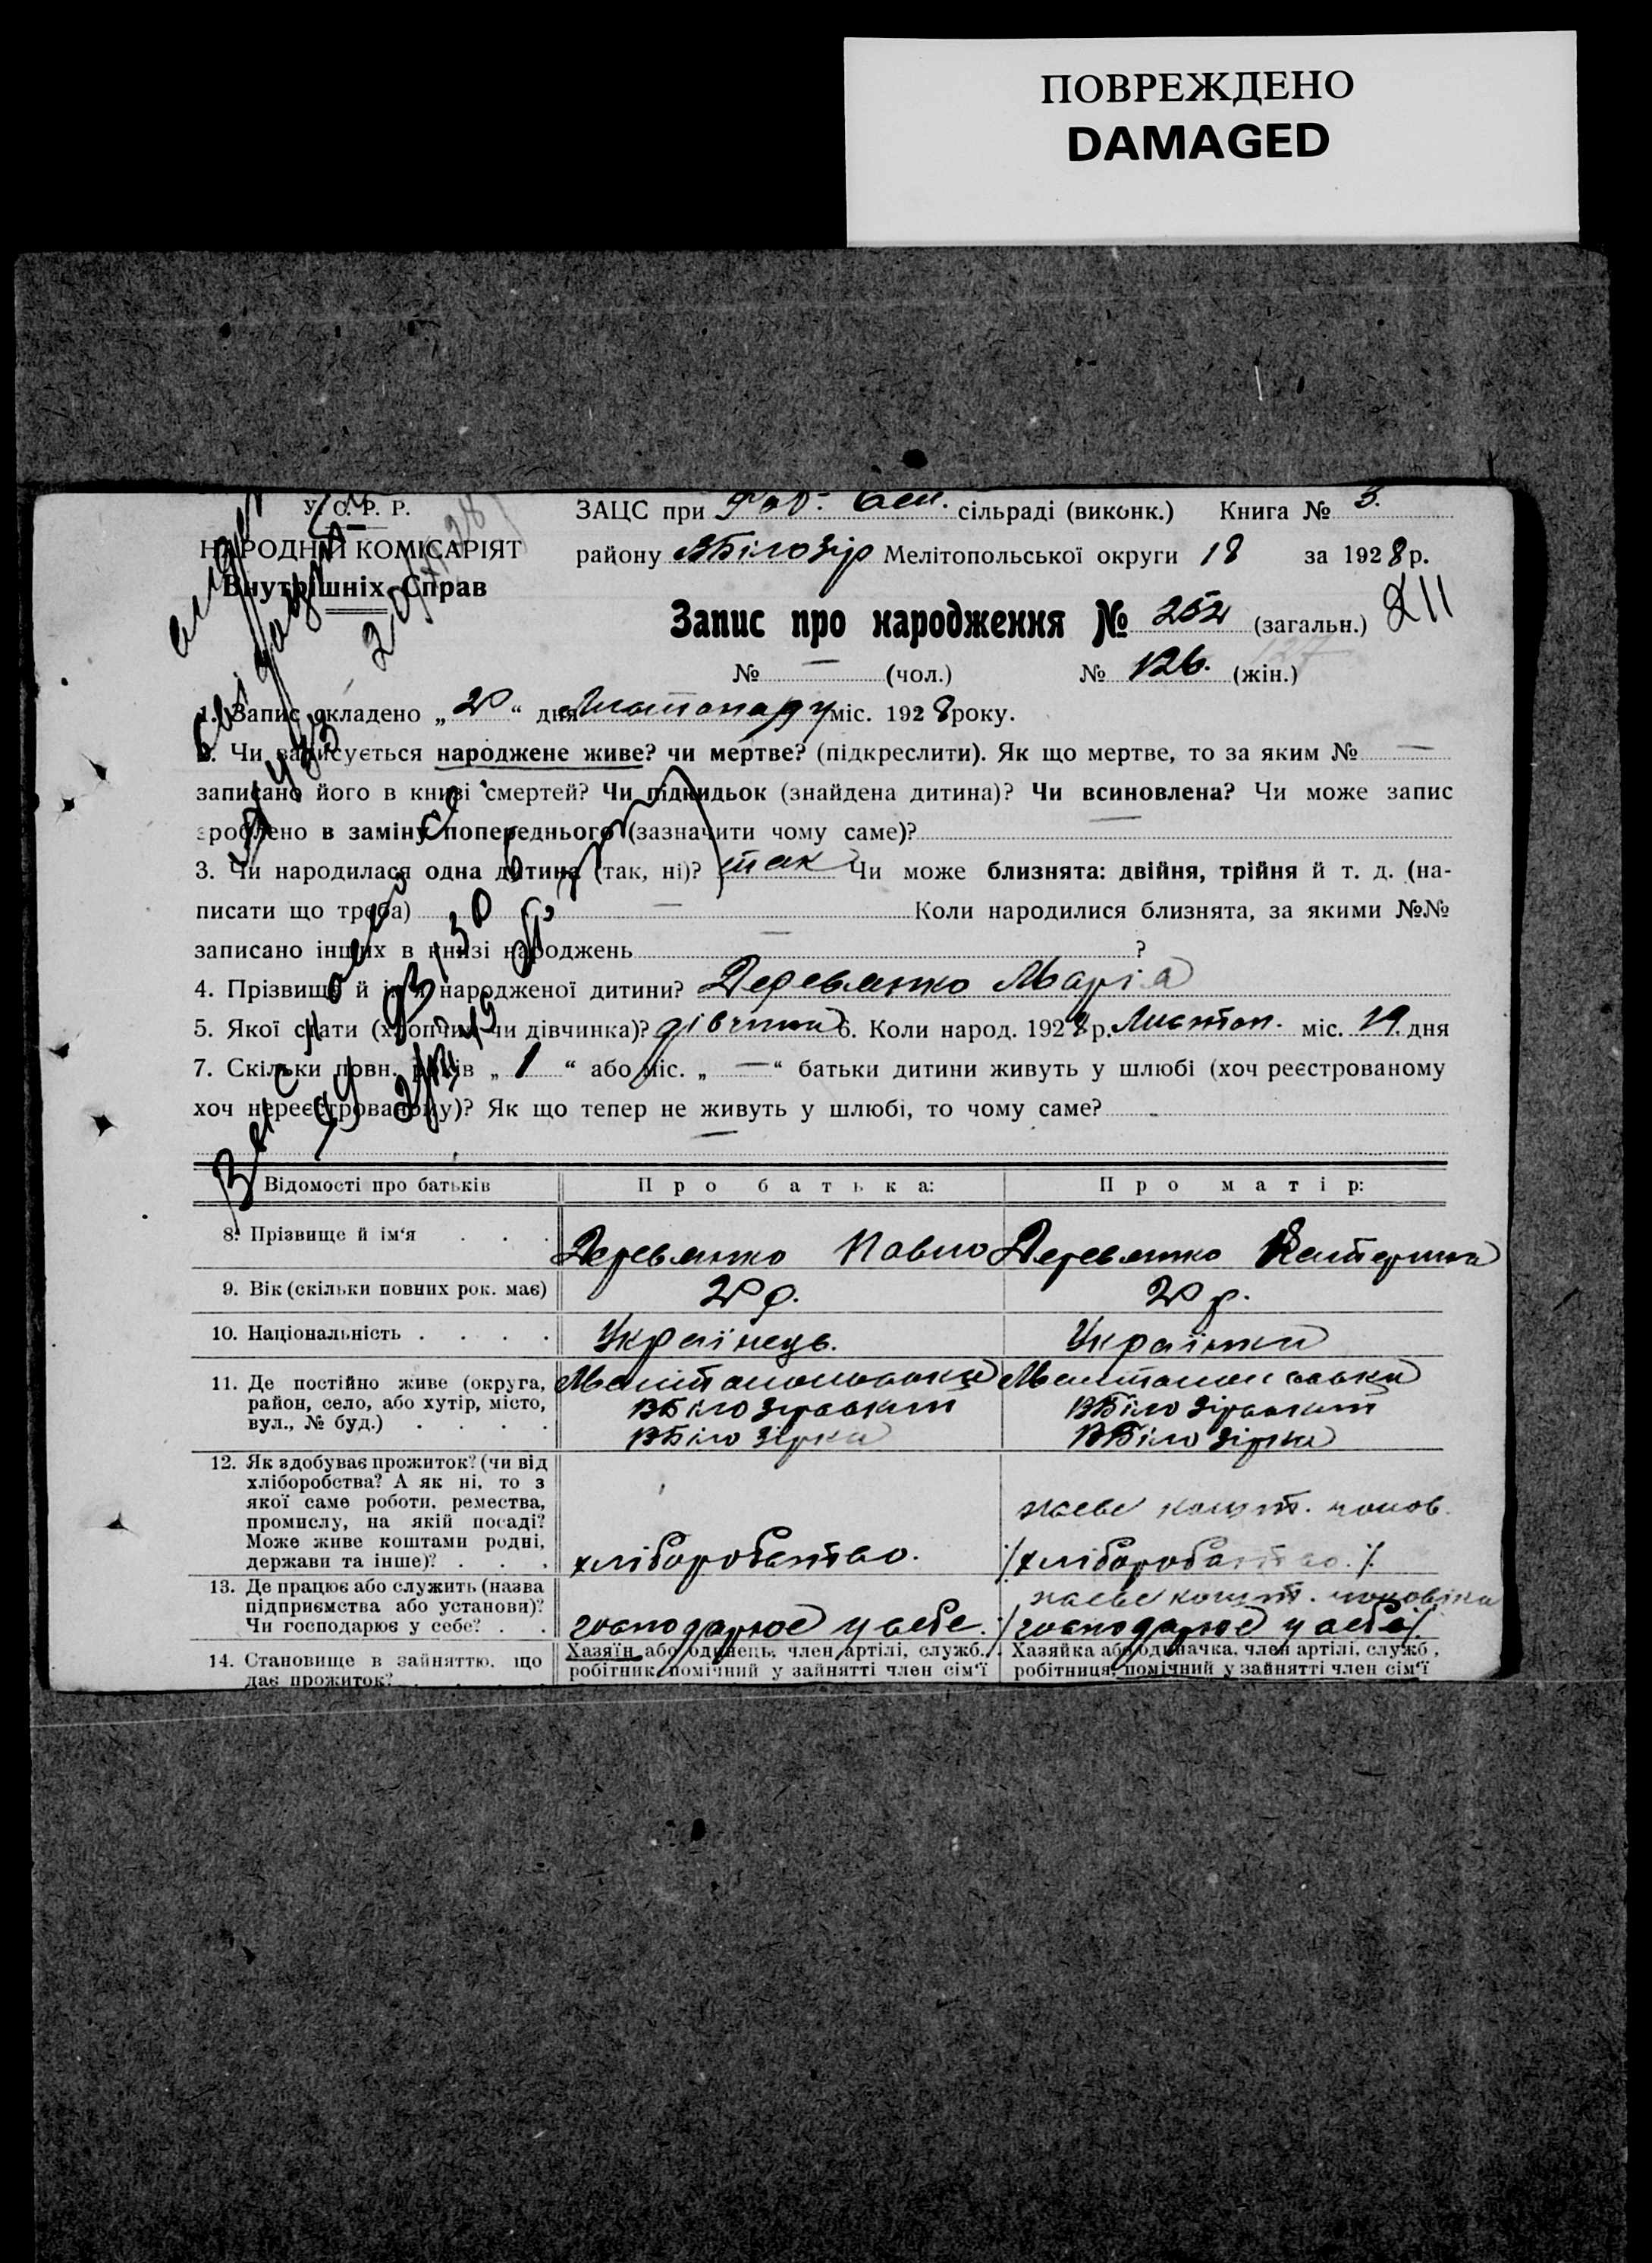 ПОВРЕЖДЕНО
DAMAGED
У. С. Р. Р.
НАРОДНІЙ КОМІСАРІЯТ
Внутрішніх Справ
ЗАЦС при сільраді (виконк.) Книга № 3.
району ВБілозір Мелітопольської округи 18 за 1928 р.
Запис про народження № 252 (загальн.) 211
№ — (чол.) № 126. (жін.)
1. Запис складено „20“ дня Листопаду міс. 1928 року.
2. Чи записується народжене живе? чи мертве? (підкреслити). Як що мертве, то за яким № —
записано його в книзі смертей? Чи підкидьок (знайдена дитина)? Чи всиновлена? Чи може запис
зроблено в заміну попереднього (зазначити чому саме)? —
3. Чи народилася одна дитина (так, ні)? так Чи може близнята: двійня, трійня й т. д. (на-
писати що треба) — Коли народилися близнята, за якими №№
записано інших в книзі народжень — ?
4. Прізвище й ім'я народженої дитини? Деревянко Марія
5. Якої стати (хлопчик чи дівчинка)? дівчинка 6. Коли народ. 1928 р. Листоп. міс. 19. дня
7. Скільки повн. років „1“ або міс. „—“ батьки дитини живуть у шлюбі (хоч реєстрованому
хоч нереєстрованому)? Як що тепер не живуть у шлюбі, то чому саме?
—
Відомості про батьків Про батька: Про матір:
8. Прізвище й ім'я . . . Деревянко Павло Деревянко Катерина
9. Вік (скільки повних рок. має) 20 р. 20 р.
10. Національність . . . . Українець. Українка
11. Де постійно живе (округа, Мелітопольська Мелітопольська
район, село, або хутір, місто, ВБілозірський ВБілозірський
вул., № буд.) . . . . ВБілозірка ВБілозірка
12. Як здобуває прожиток? (чи від
хліборобства? А як ні, то з
якої саме роботи, ремества, живе кошт. чолов.
промислу, на якій посаді?
Може живе коштами родні,
держави та інше)? . . . хліборобство. /хліборобство./
13. Де працює або служить (назва живе кошт. чоловіка
підприємства або установи)?
Чи господарює у себе? . . господарює у себе. /господарює у себе/.
14. Становище в зайняттю, що Хазяїн або одинець, член артілі, служб., Хазяйка або одиначка, член артілі, служб.,
дає прожиток? . . . . робітник помічний у зайнятті член сім'ї робітниця, помічний у зайнятті член сім'ї